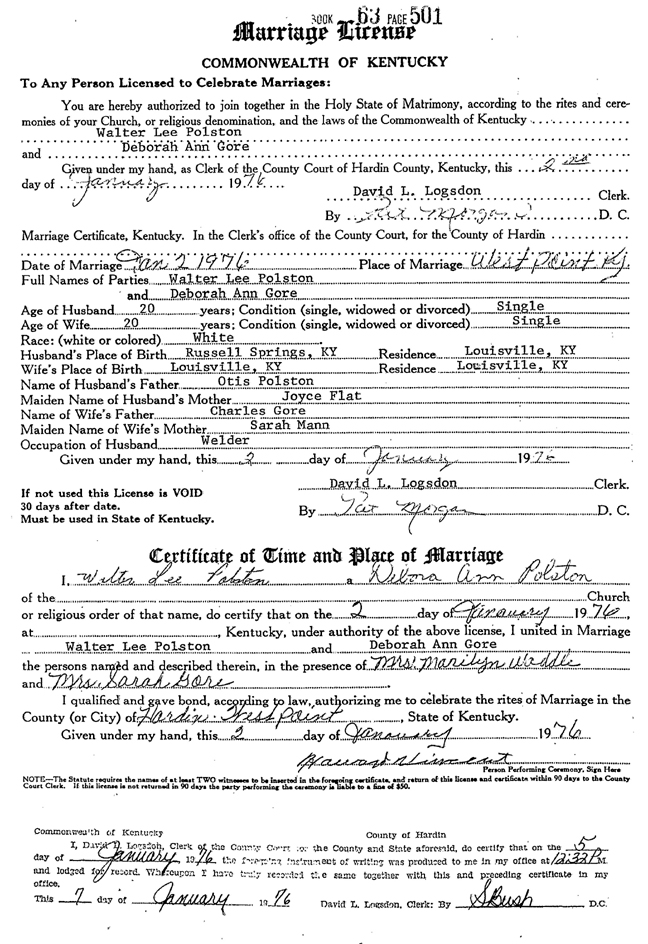 BOOK 63 PAGE 501
Marriage License
COMMONWEALTH OF KENTUCKY
To Any Person Licensed to Celebrate Marriages:
You are hereby authorized to join together in the Holy State of Matrimony, according to the rites and cere-
monies of your Church, or religious denomination, and the laws of the Commonwealth of Kentucky
Walter Lee Polston
and Deborah Ann Gore
Given under my hand, as Clerk of the County Court of Hardin County, Kentucky, this 2nd
day of January 1976
David L. Logsdon Clerk.
By Pat Morgan D. C.
Marriage Certificate, Kentucky. In the Clerk's office of the County Court, for the County of Hardin
Date of Marriage Jan 2 1976 Place of Marriage West Point, Ky.
Full Names of Parties Walter Lee Polston
and Deborah Ann Gore
Age of Husband 20 years; Condition (single, widowed or divorced) Single
Age of Wife 20 years; Condition (single, widowed or divorced) Single
Race: (white or colored) White
Husband's Place of Birth Russell Springs, KY Residence Louisville, KY
Wife's Place of Birth Louisville, KY Residence Louisville, KY
Name of Husband's Father Otis Polston
Maiden Name of Husband's Mother Joyce Flat
Name of Wife's Father Charles Gore
Maiden Name of Wife's Mother Sarah Mann
Occupation of Husband Welder
Given under my hand, this 2 day of January 1976
David L. Logsdon Clerk.
If not used this License is VOID
30 days after date.
Must be used in State of Kentucky.
By Pat Morgan D. C.
Certificate of Time and Place of Marriage
I, Walter Lee Polston a Debora Ann Polston
of the Church
or religious order of that name, do certify that on the 2 day of January 1976,
at , Kentucky, under authority of the above license, I united in Marriage
Walter Lee Polston and Deborah Ann Gore
the persons named and described therein, in the presence of Mrs. Marilyn Waddle
and Mrs. Sarah Gore
I qualified and gave bond, according to law, authorizing me to celebrate the rites of Marriage in the
County (or City) of Hardin West Point, State of Kentucky.
Given under my hand, this 2 day of January 1976
Vincent
Person Performing Ceremony, Sign Here
NOTE—The Statute requires the names of at least TWO witnesses to be inserted in the foregoing certificate, and return of this license and certificate within 90 days to the County
Court Clerk. If this license is not returned in 90 days the party performing the ceremony is liable to a fine of $50.
Commonwealth of Kentucky County of Hardin
I, David L. Logsdon, Clerk of the County Court for the County and State aforesaid, do certify that on the 5
day of January 1976 the foregoing instrument of writing was produced to me in my office at 12:32 P.M.
and lodged for record. Whereupon I have truly recorded the same together with this and preceding certificate in my
office.
This 7 day of January 1976 David L. Logsdon, Clerk: By S Bush D.C.